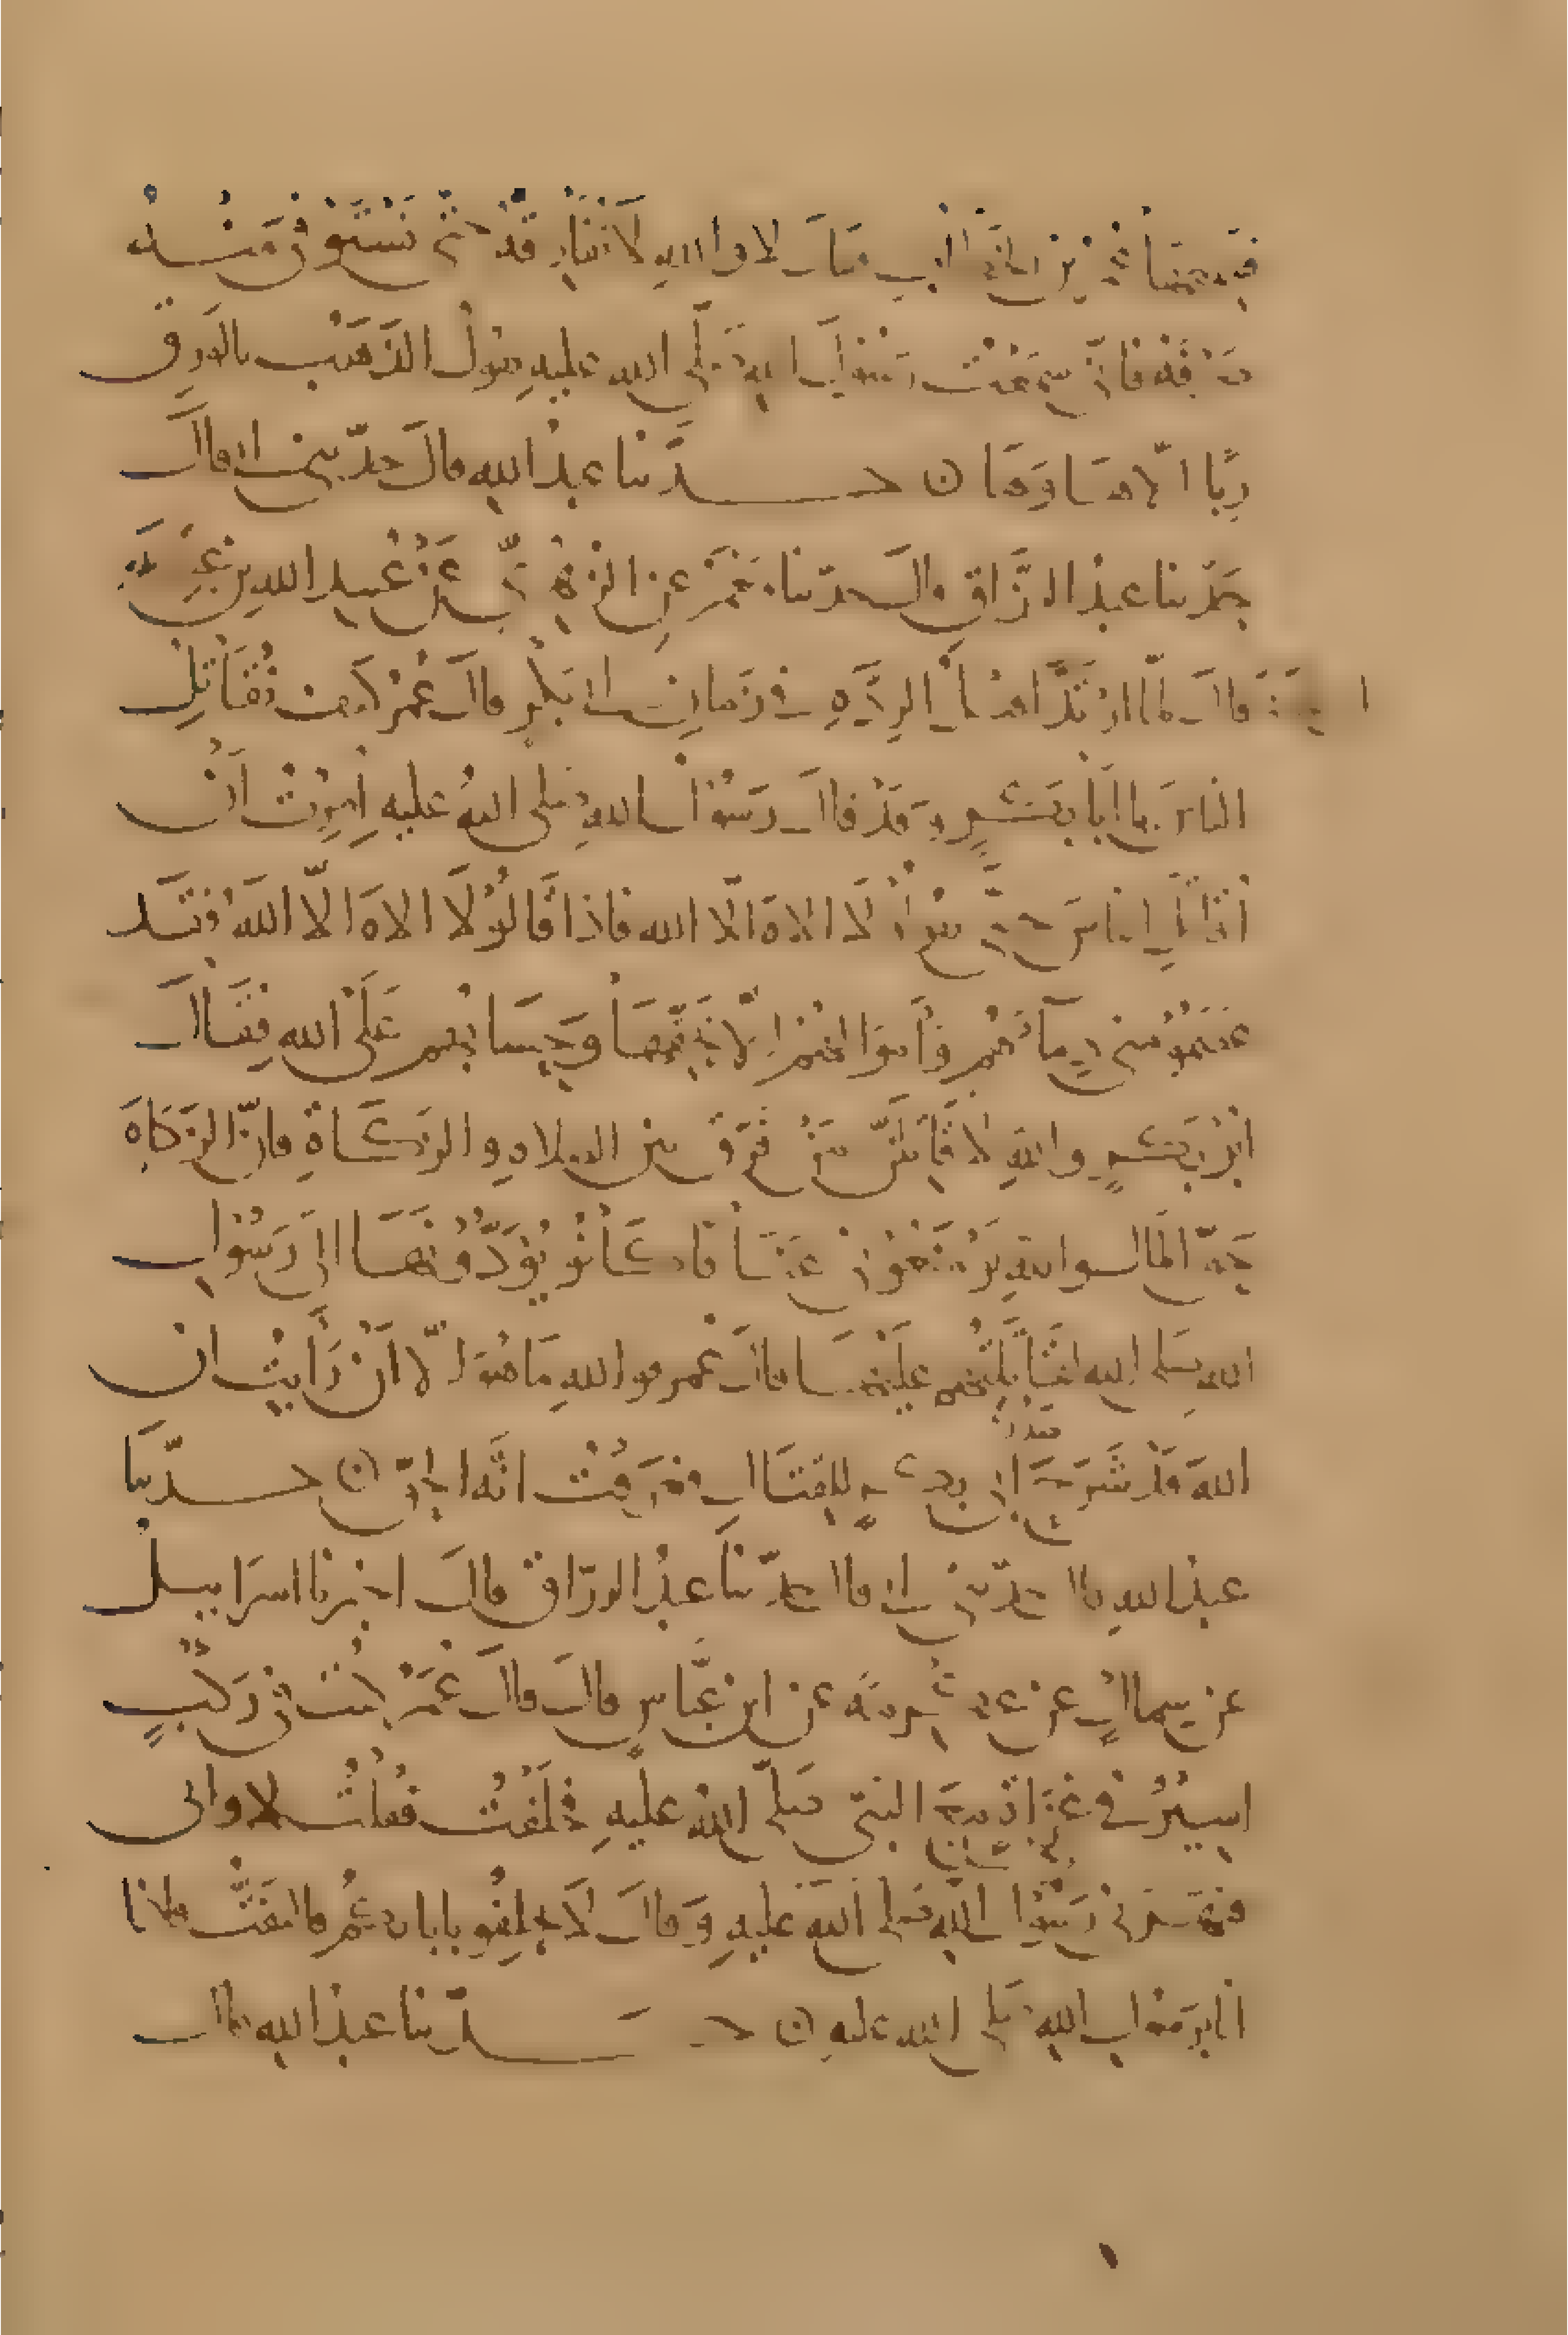 فسمعها عمر بن الخطاب فقال لا والله لا تفارقه حتى تستوفي منه
صرفه فاني سمعت رسول الله صلى الله عليه يقول الذهب بالورق
ربًا الّا هَا وَهَا ن حدّثنا عبد الله قال حدّثني ابي قال
حدثنا عبد الرزّاق قال حدّثنا معمر عن الزهريّ عن عُبيد الله بن
قال لمّا ارتدّ اهل الردّة في زمان ابي بكر قال عُمر كيف تُقاتل
الناس يا أبا بكرٍ وقد قال رسول الله صلى الله عليه أُمِرْتُ أَنْ
أُقاتل الناس حتى يقولوا لَا الاهَ الّا الله فاذا قَالُوْ لَا الاهَ الّا الله فقد
عصمو مني دمآءهم وأموالهم الّا بحقّها وحسابهم عَلَى الله فقال
أبو بكرٍ والله لاقاتلنّ من فرّق بين الصلاه والزكاةِ فانّ الزكاهَ
حقّ المال والله لو منعوني عناقا كانو يؤدّونها الى رسول
الله صلى الله لقاتلتهم عليها قال عُمر فوالله مَا هو الّا أن رَأيتُ ان
اللهَ قد شرح صدر ابي بكرٍ للقتال فعرفت انّه الحقّ ن حدّثنا
عبد الله قال حدّثني ابي قال حدّثنا عبد الرزّاق قال اخبرنا اسرائيل
عن سماكٍ عن عكرمة عن ابن عبّاسٍ قال قال عُمَرُ كنت في رَكْبٍ
اسيرُ في غزاةٍ مع النبي صلّى الله عليهِ فحلفتُ فقلتُ لا وابي
فنهرني رسول الله صلى الله عليهِ وقال لا تحلفو باباىكم فالتفتّ فاذا
انا برسول الله صلى الله عليه ن حدّثنا عبد الله قال